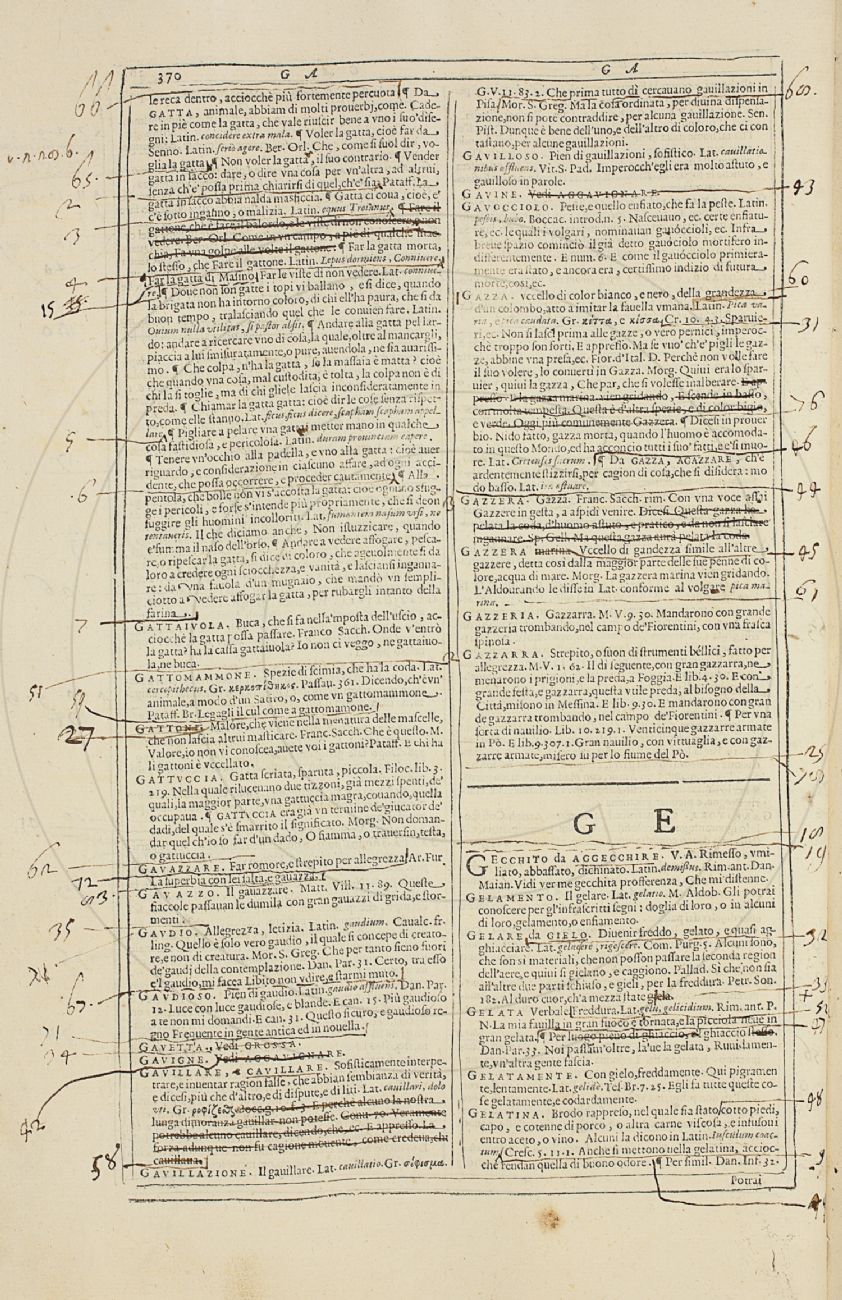 370 GA GA
le reca dentro, acciocchè più fortemente percuota ¶ Da
GATTA, animale, abbiam di molti prouerbj, come. Cade-
re in piè come la gatta, che vale riuscir bene a vno i suo'dise-
gni: Latin. concidere extra mala. ¶ Voler la gatta, cioè far da
Senno. Latin. serio agere. Ber. Orl. Che, come si suol dir, vo-
glia la gatta. ¶ Non voler la gatta, il suo contrario. ¶ Vender
gatta in sacco: dare, o dire vna cosa per vn'altra, ad altrui,
senza ch'e' possa prima chiarirsi di quel, ch'e' sia. Pataff. La
gatta in sacco abbia nalda masticcia. ¶ Gatta ci coua, cioè, e'
c'è sotto inganno, o malizia. Latin. equus Troianus. ¶ Fare il
gattone, che è fare il balordo, e le viste di non conoscere, o non
vedere. Ber. Orl. Come in vn campo, a piè di qualche mac-
chia, Fa vna golpe alle volte il gattone. ¶ Far la gatta morta,
lo stesso, che Fare il gattone. Latin. Lepus dormiens, Conniuere.
¶ Far la gatta di Masino, Far le viste di non vedere. Lat. conniue-
re. ¶ Doue non son gatte i topi vi ballano, e si dice, quando
la brigata non ha intorno coloro, di chi ell'ha paura, che si da
buon tempo, tralasciando quel che le conuien fare. Latin.
Ouium nulla vtilitas, si pastor absit. ¶ Andare alla gatta pel lar-
do: andare a ricercare vno di cosa, la quale, oltre al mancargli,
piaccia a lui smisuratamente, o pure, auendola, ne sia auarissi-
mo. ¶ Che colpa, n'ha la gatta, se la massaia è matta? cioè
che quando vna cosa, mal custodita, è tolta, la colpa non è di
chi la si toglie, ma di chi gliele lascia inconsideratamente in
preda. ¶ Chiamar la gatta gatta: cioè dir le cose senza rispet-
to, come elle stanno. Lat. ficus ficus dicere, scapham scapham appel-
lare. ¶ Pigliare a pelare vna gatta: metter mano in qualche
cosa fastidiosa, e pericolosa. Latin. duram prouinciam capere.
¶ Tenere vn'occhio alla padella, e vno alla gatta: cioè auer
riguardo, e considerazione in ciascuno affare, ad ogni acci-
dente, che possa occorrere, e proceder cautamente. ¶ Alla
pentola, che bolle non vi s'accosta la gatta: cioè ognuno sfug-
ge i pericoli, e forse s'intende più propriamente, che si deon
fuggire gli huomini incolloriti. Lat. fumantem nasum vrsi, ne
tentaueris. Il che diciamo anche, Non istuzzicare, quando
e' fuma il naso dell'orso. ¶ Andare a vedere affogare, pesca-
re, o ripescar la gatta, si dice di coloro, che ageuolmente si da
loro a credere ogni sciocchezza, e vanità, e lasciansi inganna-
re: da vna fauola d'un mugnaio, che mandò vn sempli-
ciotto a vedere affogar la gatta, per rubargli intanto della
farina.
GATTAIVOLA. Buca, che si fa nella'mposta dell'uscio, ac-
ciocchè la gatta possa passare. Franco Sacch. Onde v'entrò
la gatta? ha la casa gattaiuola? Io non ci veggo, ne gattaiuo-
la, ne buca.
GATTOMAMMONE. Spezie di scimia, che ha la coda. Lat.
cercopithecus. Gr. κερκοπίθηκος. Passau. 361. Dicendo, ch'è vn'
animale, a modo d'un Satiro, o, come vn gattomammone.
Pataff. Br. Legagli il cul come a gattomamone.
GATTONE. Malore, che viene nella menatura delle mascelle,
che non lascia altrui masticare. Franc. Sacch. Che è questo. M.
Valore, io non vi conoscea, auete voi i gattoni? Pataff. E chi ha
li gattoni è vccellato.
GATTVCCIA. Gatta scriata, sparuta, piccola. Filoc. lib. 3.
219. Nella quale riluceuano due tizzoni, già mezzi spenti, de'
quali, la maggior parte, vna gattuccia magra, couando, quella
occupaua. ¶ GATTVCCIA era già vn termine de' giucator de'
dadi, del quale s'è smarrito il significato. Morg. Non doman-
dar quel ch'io so far d'un dado, O fiamma, o trauersin, testa,
o gattuccia.
GAVAZZARE. Far romore, e strepito per allegrezza. Ar. Fur.
La superbia con lei salta, e gauazza.
GAVAZZO. Il gauazzare. Matt. Vill. 11. 89. Queste
fiaccole passauan le dumila con gran gauazzi di grida, e stor-
menti.
GAVDIO. Allegrezza, letizia. Latin. gaudium. Caualc. fr.
ling. Quello è solo vero gaudio, il quale si concepe di creato-
re, e non di creatura. Mor. S. Greg. Che per tanto sieno fuori
de' gaudj della contemplazione. Dan. Par. 31. Certo, tra esso
e'l gaudio, mi facea Libito non vdire, e starmi muto.
GAVDIOSO. Pien di gaudio. Latin. gaudio affluens. Dan. Par.
12. Luce con luce gaudiose, e blande. E can. 15. Più gaudioso
a te non mi domandi. E can. 31. Questo sicuro, e gaudioso re-
gno Frequente in gente antica ed in nouella.
GAVETTA. Vedi GROSSA.
GAVIGNE. Vedi AGGAVIGNARE.
GAVILLARE, e CAVILLARE. Sofisticamente interpe-
trare, e inuentar ragion false, che abbian sembianza di verità,
e dicesi, più che d'altro, e di dispute, e di liti. Lat. cauillari, dolo
vti. Gr. σοφίζεσθαι. Bocc. g. 10. f. 3. E perchè alcuno la nostra
lunga dimoranza gauillar non potesse. Gouu. 70. Veramente
potrebbe alcuno cauillare, dicendo, che, ec. E appresso. La
forza adunque non fu cagione mouente, come credeua, chi
cauillaua.
GAVILLAZIONE. Il gauillare. Lat. cauillatio. Gr. σόφισμα.
G. V. 11. 83. 2. Che prima tutto dì cercauano gauillazioni in
Pisa. Mor. S. Greg. Ma la cosa ordinata, per diuina dispensa-
zione, non si potè contraddire, per alcuna gauillazione. Sen.
Pist. Dunque è bene dell'uno, e dell'altro di coloro, che ci con
tastano, per alcune gauillazioni.
GAVILLOSO. Pien di gauillazioni, sofistico. Lat. cauillatio-
nibus affluens. Vit. S. Pad. Imperocch'egli era molto astuto, e
gauilloso in parole.
GAVINE. Vedi AGGAVIGNARE.
GAVOCCIOLO. Peste, e quello enfiato, che fa la peste. Latin.
pestis, bubo. Boccac. introd. n. 5. Nasceuano, ec. certe enfiatu-
re, ec. le quali i volgari, nominauan gauoccioli, ec. Infra
breue spazio cominciò il già detto gauocciolo mortifero in-
differentemente. E num. 6. E come il gauocciolo primiera-
mente era stato, e ancora era, certissimo indizio di futura
morte, così, ec.
GAZZA. Vccello di color bianco, e nero, della grandezza
d'un colombo, atto a imitar la fauella vmana. Latin. Pica va-
ria, e pica caudata. Gr. κίττα, e κίσσα. Cr. 10. 4. 3. Sparuie-
ri, ec. Non si lasci prima alle gazze, o vero pernici, imperoc-
chè troppo son forti. E appresso. Ma se vuo' ch'e' pigli le gaz-
ze, abbine vna presa, ec. Fior. d'Ital. D. Perchè non volle fare
il suo volere, lo conuertì in Gazza. Morg. Quiui era lo spar-
uier, quiui la gazza, Che par, che si volesse inalberare. E ap-
presso. E la gazza marina vien gridando, E scende in basso,
con molta tempesta. Questa è d'altra spezie, e di color bigio,
e verde. Oggi più comunemente Gazzera. ¶ Dicesi in prouer
bio. Nido fatto, gazza morta, quando l'huomo è accomoda-
to in questo Mondo, ed ha acconcio tutti i suo' fatti, e e' si muo-
re. Lat. Cretensis sacrum. ¶ Da GAZZA, AGAZZARE, ch'è
ardentemente stizzirsi, per cagion di cosa, che si disidera: mo
do basso. Lat. inæstuare.
GAZZERA. Gazza. Franc. Sacch. rim. Con vna voce assai
Gazzere in gesta, a aspidi venire. Dicesi. Questa gazza ha
pelata la coda, d'huomo astuto, e pratico, e da non si lasciare
ingannare. Sp. Gell. Ma questa gazza aurà pelata la coda
GAZZERA marina. Vccello di gandezza simile all'altre
gazzere, detta così dalla maggior parte delle sue penne di co-
lore, acqua di mare. Morg. La gazzera marina vien gridando.
L'Aldourando le disse in Lat. conforme al volgare pica ma-
rina.
GAZZERIA. Gazzarra. M. V. 9. 30. Mandarono con grande
gazzeria trombando, nel campo de' Fiorentini, con vna frasca
spinosa.
GAZZARRA. Strepito, o suon di strumenti béllici, fatto per
allegrezza. M. V. 1. 62. Il dì seguente, con gran gazzarra, ne
menarono i prigioni, e la preda, a Foggia. E lib. 4. 30. E con
grande festa, e gazzarra, questa vtile preda, al bisogno della
Città, misono in Messina. E lib. 9. 30. E mandarono con gran
de gazzarra trombando, nel campo de' Fiorentini. ¶ Per vna
sorta di nauilio. Lib. 10. 219. 1. Venticinque gazzarre armate
in Pò. E lib. 9. 307. 1. Gran nauilio, con vittuaglia, e con gaz-
zarre armate, misero su per lo fiume del Pò.
GE
GECCHITO da AGGECCHIRE. V. A. Rimesso, vmi-
liato, abbassato, dichinato. Latin. demissus. Rim. ant. Dan.
Maian. Vidi ver me gecchita profferenza, Che mi distenne.
GELAMENTO. Il gelare. Lat. gelatio. M. Aldob. Gli potrai
conoscere per gl'infrascritti segni: doglia di loro, o in alcuni
di loro, gelamento, o enfiamento.
GELARE, da GIELO. Diuenir freddo, gelato, e quasi ag-
ghiacciare. Lat. gelascere, rigescere. Com. Purg. 5. Alcuni sono,
che son sì materiali, che non posson passare la seconda region
dell'aere, e quiui si gielano, e caggiono. Pallad. Si che non sia
all'altre due parti schiuso, e gieli, per la freddura. Petr. Son.
182. Al duro cuor, ch'a mezza state gela.
GELATA Verbale. Freddura. Lat. gelu, gelicidium. Rim. ant. P.
N. La mia fauilla in gran fuoco è tornata, e la picciola neue in
gran gelata. ¶ Per luogo pieno di ghiaccio, e ghiaccio stesso.
Dan. Par. 33. Noi passam'oltre, la 've la gelata, Ruuidamen-
te, vn'altra gente fascia.
GELATAMENTE. Con gielo, freddamente. Qui pigramen
te, lentamente. Lat. gelidè. Tes. Br. 7. 25. Egli fa tutte queste co-
se gelatamente, e codardamente.
GELATINA. Brodo rappreso, nel quale sia stato cotto piedi,
capo, e cotenne di porco, o altra carne viscosa, e infusoui
entro aceto, o vino. Alcuni la dicono in Latin. Iusculum coac-
tum. Cresc. 5. 11. 1. Anche si mettono nella gelatina, accioc-
chè rendan quella di buono odore. ¶ Per simil. Dan. Inf. 32.
Potrai
66
65
2
3
4
15
5
6
7
51
59
27
62
12
35
67
42
58
43
60
31
76
46
44
45
61
25
18
19
32
48
9